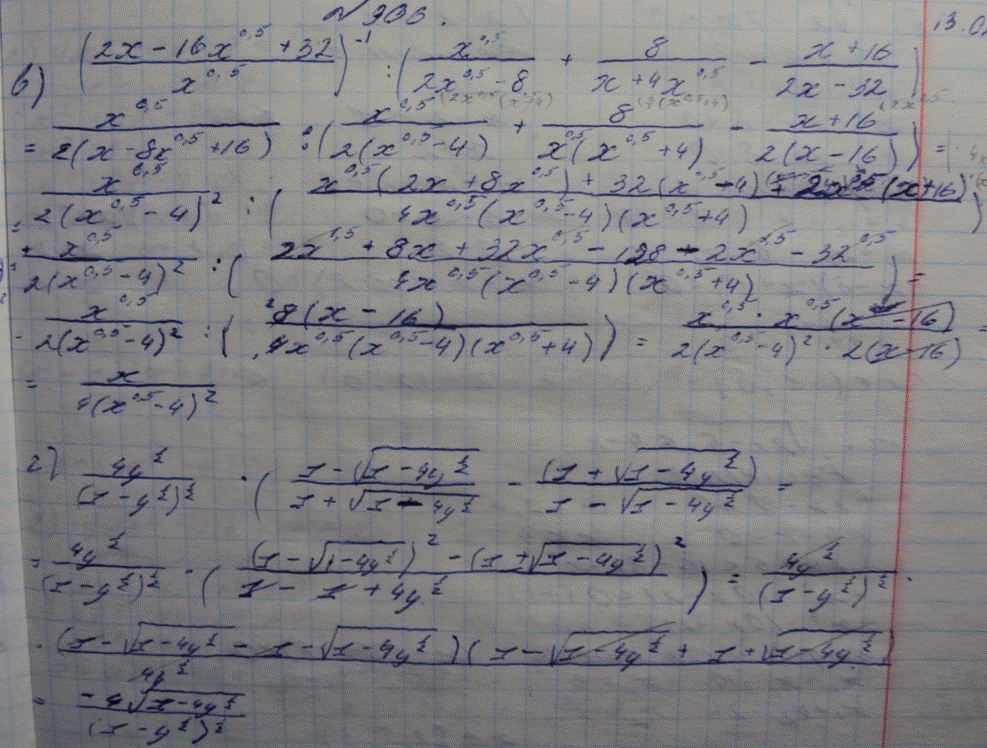 № 906. 13.0
в) ((2x - 16x^0,5 + 32)/(x^0,5))^-1 : (x^0,5/(2x^0,5 - 8) + 8/(x + 4x^0,5) - (x + 16)/(2x - 32))
= x^0,5/(2(x - 8x^0,5 + 16)) : (x^0,5/(2(x^0,5 - 4)) + 8/(x^0,5(x^0,5 + 4)) - (x + 16)/(2(x - 16))) =
= x^0,5/(2(x^0,5 - 4)^2) : ((x^0,5(2x + 8x^0,5) + 32(x^0,5 - 4) 2x^0,5(x + 16))/(4x^0,5(x^0,5 - 4)(x^0,5 + 4)))
= x^0,5/(2(x^0,5 - 4)^2) : ((2x^1,5 + 8x + 32x^0,5 - 128 - 2x^1,5 - 32^0,5)/(4x^0,5(x^0,5 - 4)(x^0,5 + 4))) =
- x^0,5/(2(x^0,5 - 4)^2) : (8(x - 16)/(4x^0,5(x^0,5 - 4)(x^0,5 + 4))) = (x^0,5 · x^0,5(x - 16))/(2(x^0,5 - 4)^2 · 2(x - 16)) =
= x/(4(x^0,5 - 4)^2)
г) 4y^½/((1 - y^½)^½) · ((1 - √(1 - 4y^½))/(1 + √(1 - 4y^½)) - (1 + √(1 - 4y^½))/(1 - √(1 - 4y^½)) =
= 4y^½/((1 - y^½)^½) · (((1 - √(1 - 4y^½))^2 - (1 + √(1 - 4y^½))^2)/(1 - 1 + 4y^½)) = 4y^½/((1 - y^½)^½) ·
· ((1 - √(1 - 4y^½) - 1 - √(1 - 4y^½))(1 - √(1 - 4y^½) + 1 + √(1 - 4y^½)))/(4y^½)
= (-4√(1 - 4y^½))/((1 - y^½)^½)